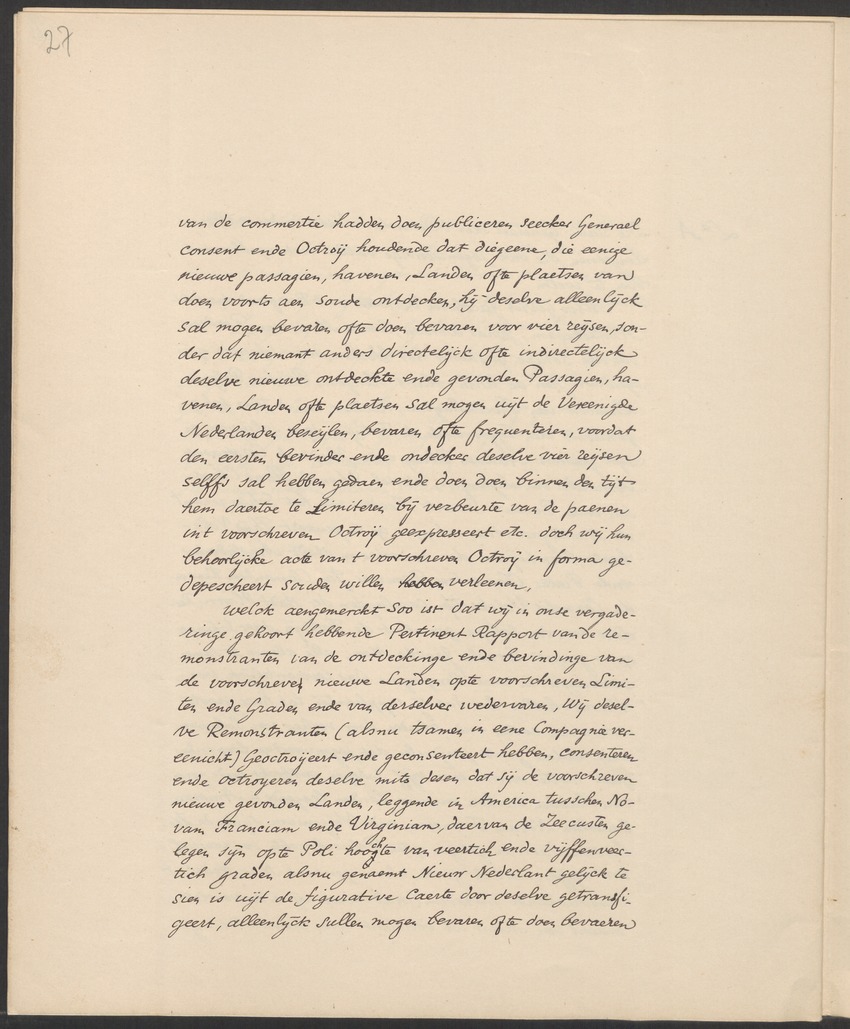 27
van de commertie hadden doen publiceren seecker Generael
consent ende Octroÿ houdende dat diegeene, die eenige
nieuwe passagien, havenen, Landen ofte plaetsen van
doen voorts aen soude ontdecken, hÿ deselve alleenlÿck
sal mogen bevaren ofte doen bevaren voor vier reÿsen, son-
der dat niemant anders directelÿck ofte indirectelÿck
deselve nieuwe ontdeckte ende gevonden Passagien, ha-
venen, Landen ofte plaetsen sal mogen uÿt de Vereenigde
Nederlanden beseÿlen, bevaren ofte frequenteren, voordat
den eersten bevinder ende ondecker deselve vier reÿsen
selffs sal hebben gedaen ende doen doen binnen den tÿt
hem daertoe te Limiteren bÿ verbeurte van de paenen
int voorschreven Octroÿ geexpresseert etc. doch wÿ hun
behoorlÿcke acte van t voorschreven Octroÿ in forma ge-
depescheert souden willen hebben verleenen,
Welck aengemerckt Soo ist dat wÿ in onse vergade-
ringe gehoort hebbende Pertinent Rapport van de re-
monstranten van de ontdeckinge ende bevindinge van
de voorschreven nieuwe Landen opte voorschreven Limi-
ten ende Graden ende van derselver wedervaren, Wÿ desel-
ve Remonstranten (alsnu tsamen in eene Compagnie ver-
eenicht) Geoctroÿeert ende geconsenteert hebben, consenteren
ende octroyeren deselve mits desen dat sÿ de voorschreven
nieuwe gevonden Landen, leggende in America tusschen No-
vam Franciam ende Virginiam, daervan de Zeecusten ge-
legen sÿn opte Poli hoochte van veertich ende vÿffenveer-
tich graden alsnu genaemt Nieuw Nederlant gelÿck te
sien is uÿt de figurative Caerte door deselve getransfi-
geert, alleenlÿck sullen mogen bevaren ofte doen bevaeren